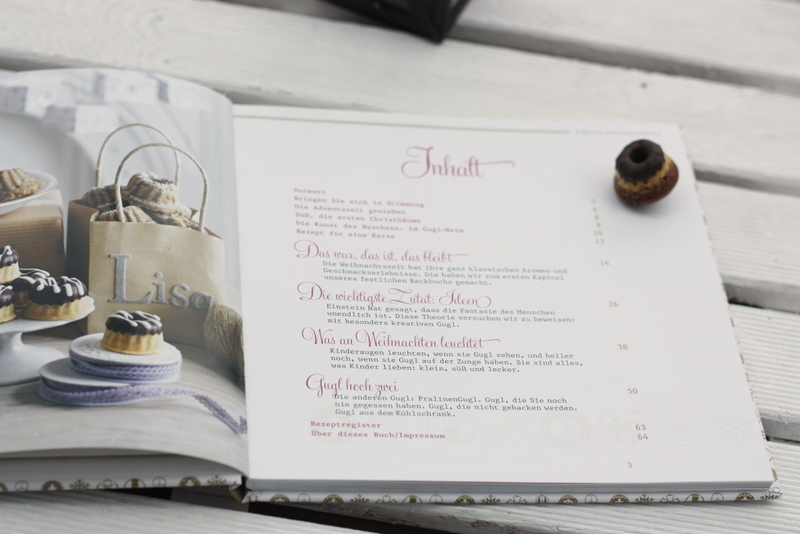 Lisa
Inhalt
Vorwort
Bringen Sie sich in Stimmung
Die Adventszeit genießen
Süß, die ersten Christbäume
Die Kunst des Naschens: im Gugl-Heim 10
Rezept für eine Kerze 13
Das war, das ist, das bleibt 14
Die Weihnachtszeit hat ihre ganz klassischen Aromen und
Geschmackserlebnisse. Die haben wir zum ersten Kapitel
unseres festlichen Backbuchs gemacht.
Die wichtigste Zutat: Ideen 26
Einstein hat gesagt, dass die Fantasie des Menschen
unendlich ist. Diese Theorie versuchen wir zu beweisen:
mit besonders kreativen Gugl.
Was an Weihnachten leuchtet 38
Kinderaugen leuchten, wenn sie Gugl sehen, und heller
noch, wenn sie Gugl auf der Zunge haben. Sie sind alles,
was Kinder lieben: klein, süß und lecker.
Gugl hoch zwei 50
Die anderen Gugl: PralinenGugl. Gugl, die Sie noch
nie gegessen haben. Gugl, die nicht gebacken werden.
Gugl aus dem Kühlschrank.
Rezeptregister 63
Über dieses Buch/Impressum 64
3